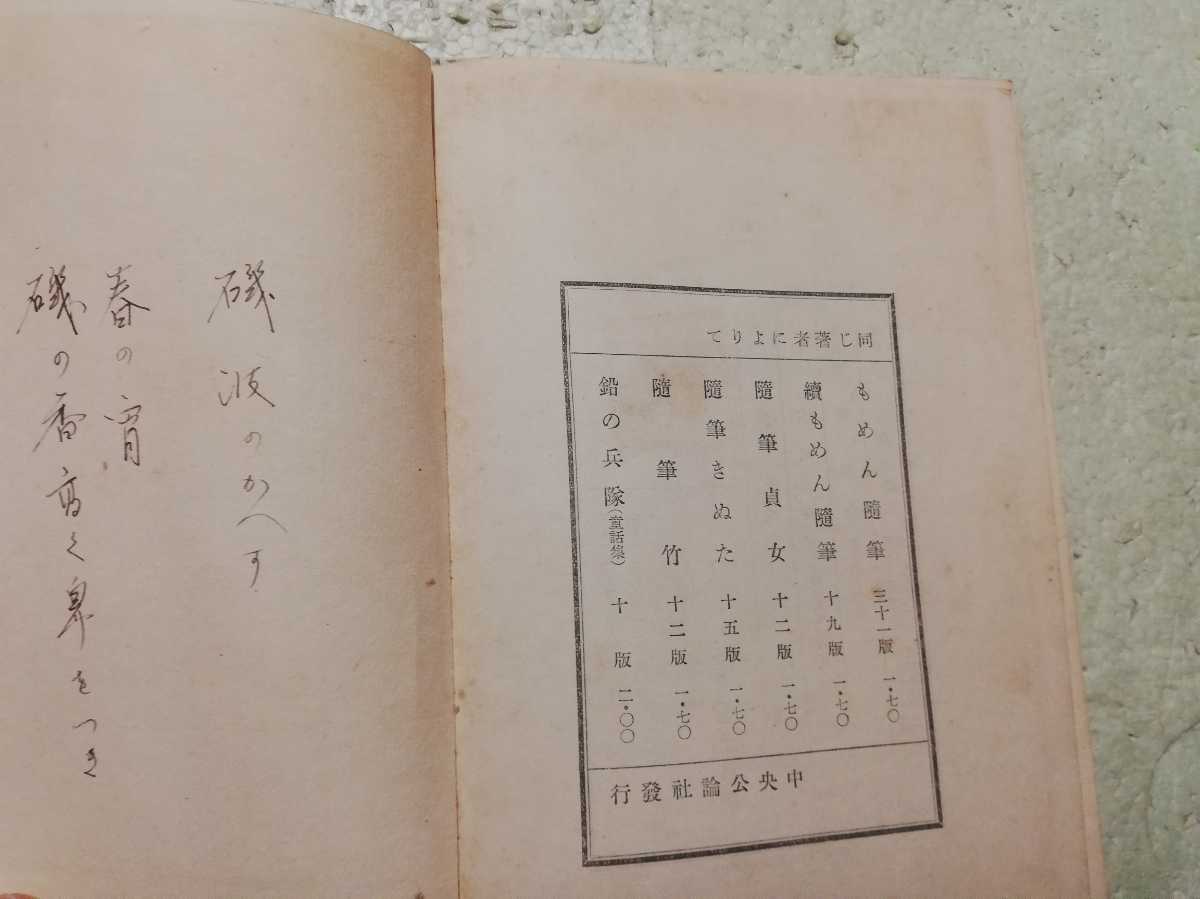 同じ著者によりて
もめん隨筆 三十一版 一・七〇
續もめん隨筆 十九版 一・七〇
隨筆貞女 十二版 一・七〇
隨筆きぬた 十五版 一・七〇
隨筆竹 十二版 一・七〇
鉛の兵隊(童話集) 十版 二・〇〇
中央公論社發行
磯波のかへす
春の宵
磯の香高く鼻をつき